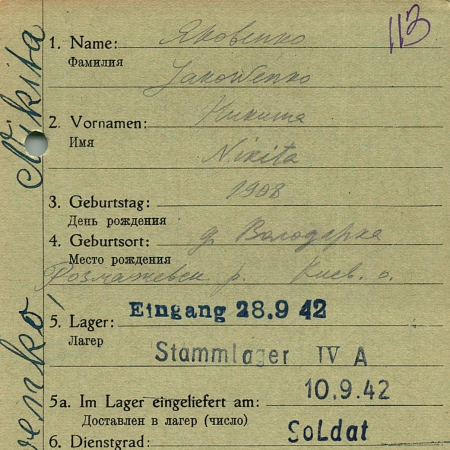 113
1. Name: Яковенко
Фамилия
Jakowenko
2. Vornamen: Никита
Имя
Nikita
3. Geburtstag: 1908
День рождения
4. Geburtsort: д. Володарка
Место рождения
Розважевск р. Киев. о.
Eingang 28.9 42
5. Lager:
Лагер
Stammlager IV A
10.9.42
5a. Im Lager eingeliefert am:
Доставлен в лагер (число)
Soldat
6. Dienstgrad:
enko, Nikita